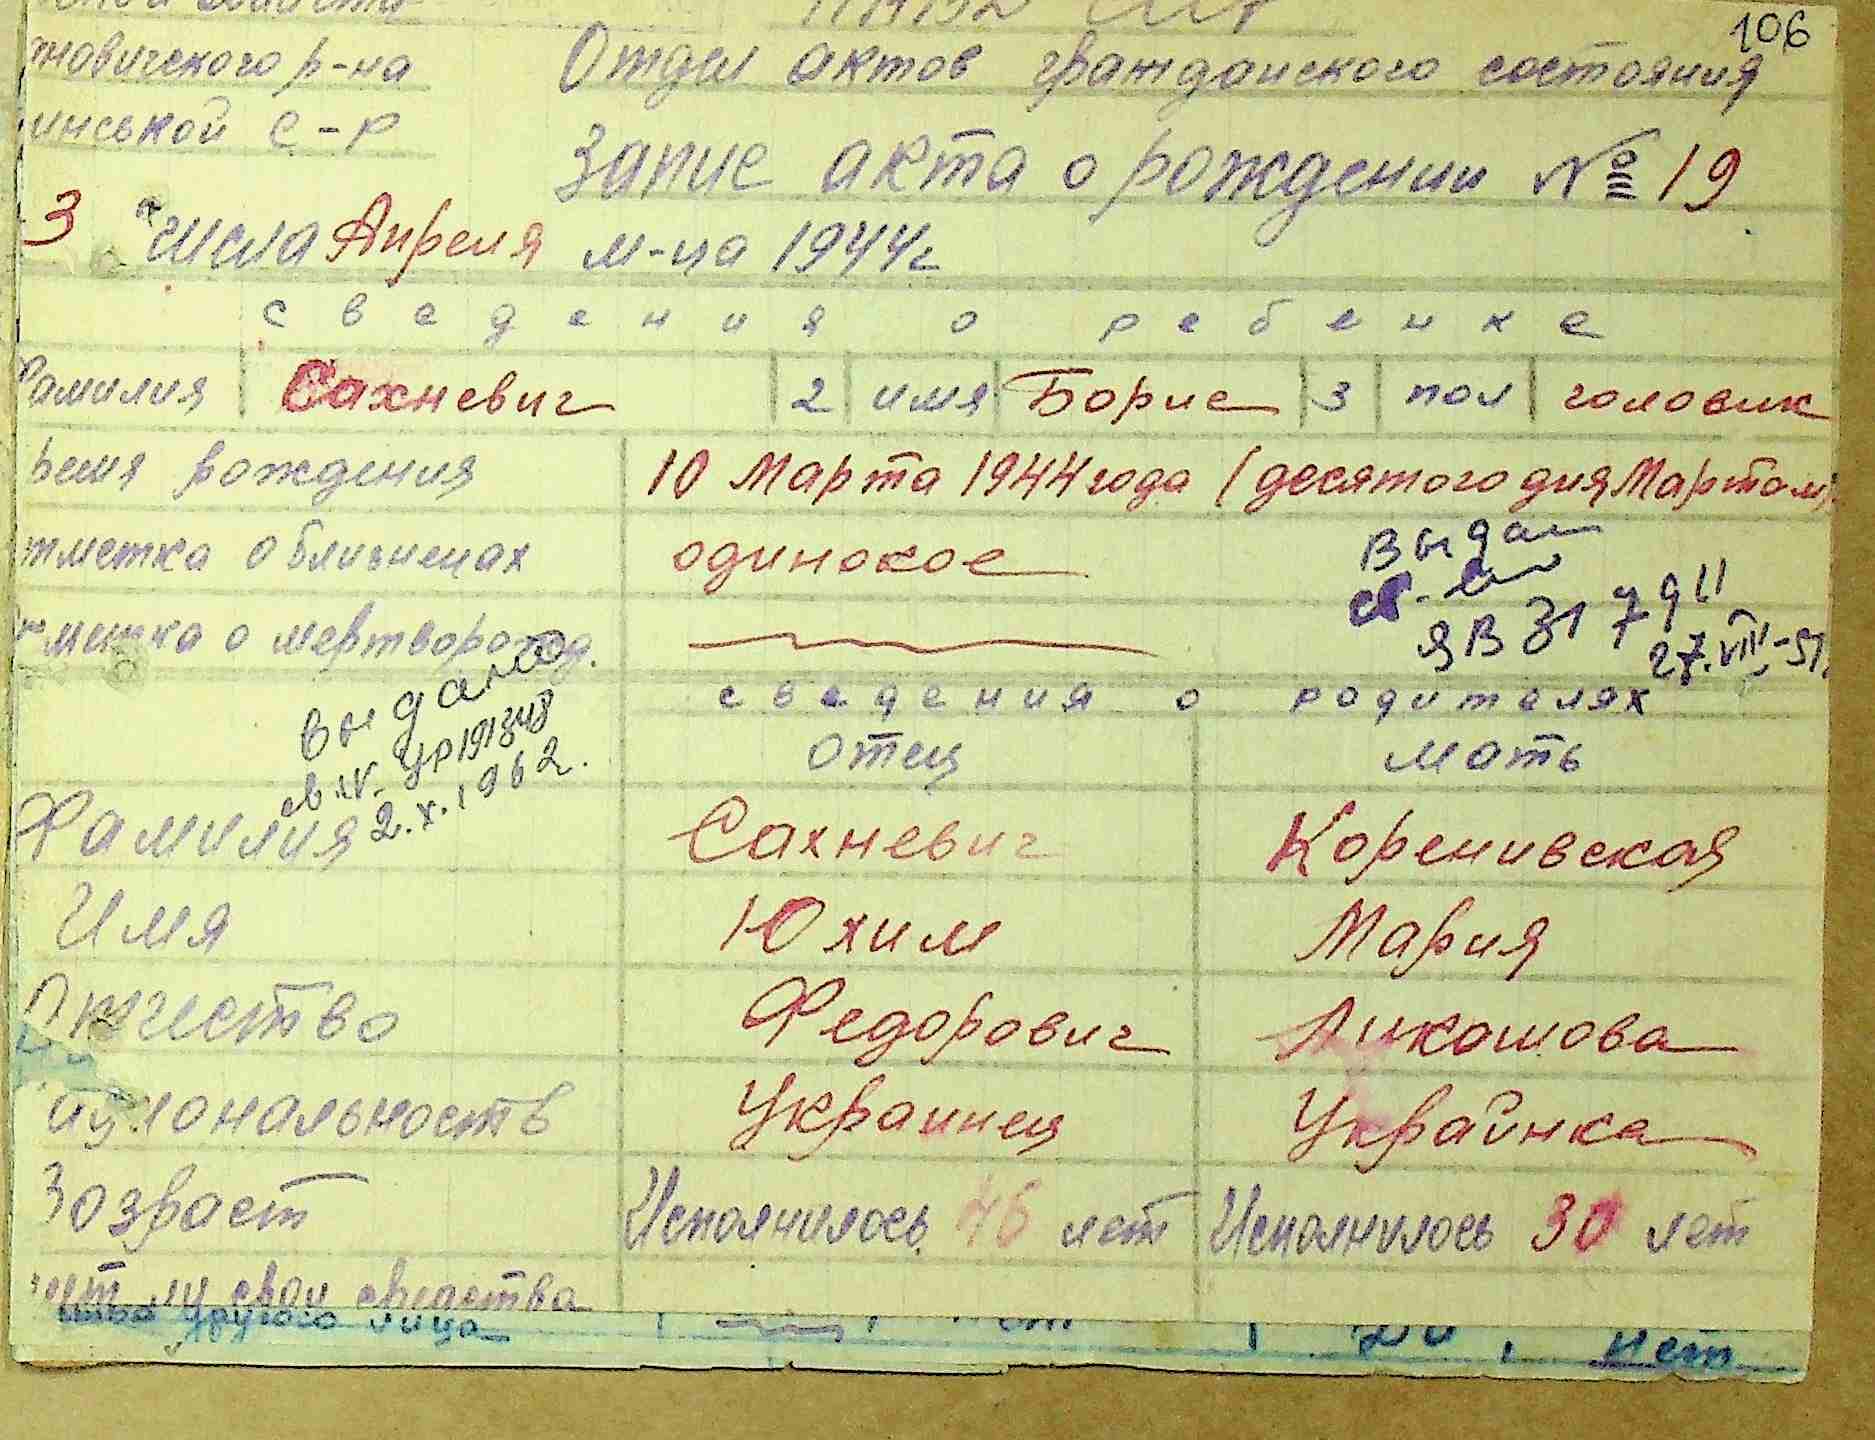 106
новичского р-на
Отдел актов гражданского состояния
инськой с-р
Запис акта о рождении № 19
3 числа Апреля м-ца 1944г
сведения о ребенке
Фамилия Сахневич 2 имя Борис 3 пол чоловик
время рождения 10 Марта 1944 года (десятого дня Марта м)
отметка о близнецах одинокое
Выдан
св-во
ЯВ 31 7911
27.VIII-51.
отметка о мертворожд.
выдано
УР 191348
2.X.1962.
сведения о родителях
отец мать
Фамилия Сахневич Коренивская
Имя Юхим Мария
Отчество Федорович Лукашова
ациональность Украинец Українка
Возраст Исполнилось 46 лет Исполнилось 30 лет
ли свои средства
другого лица нет